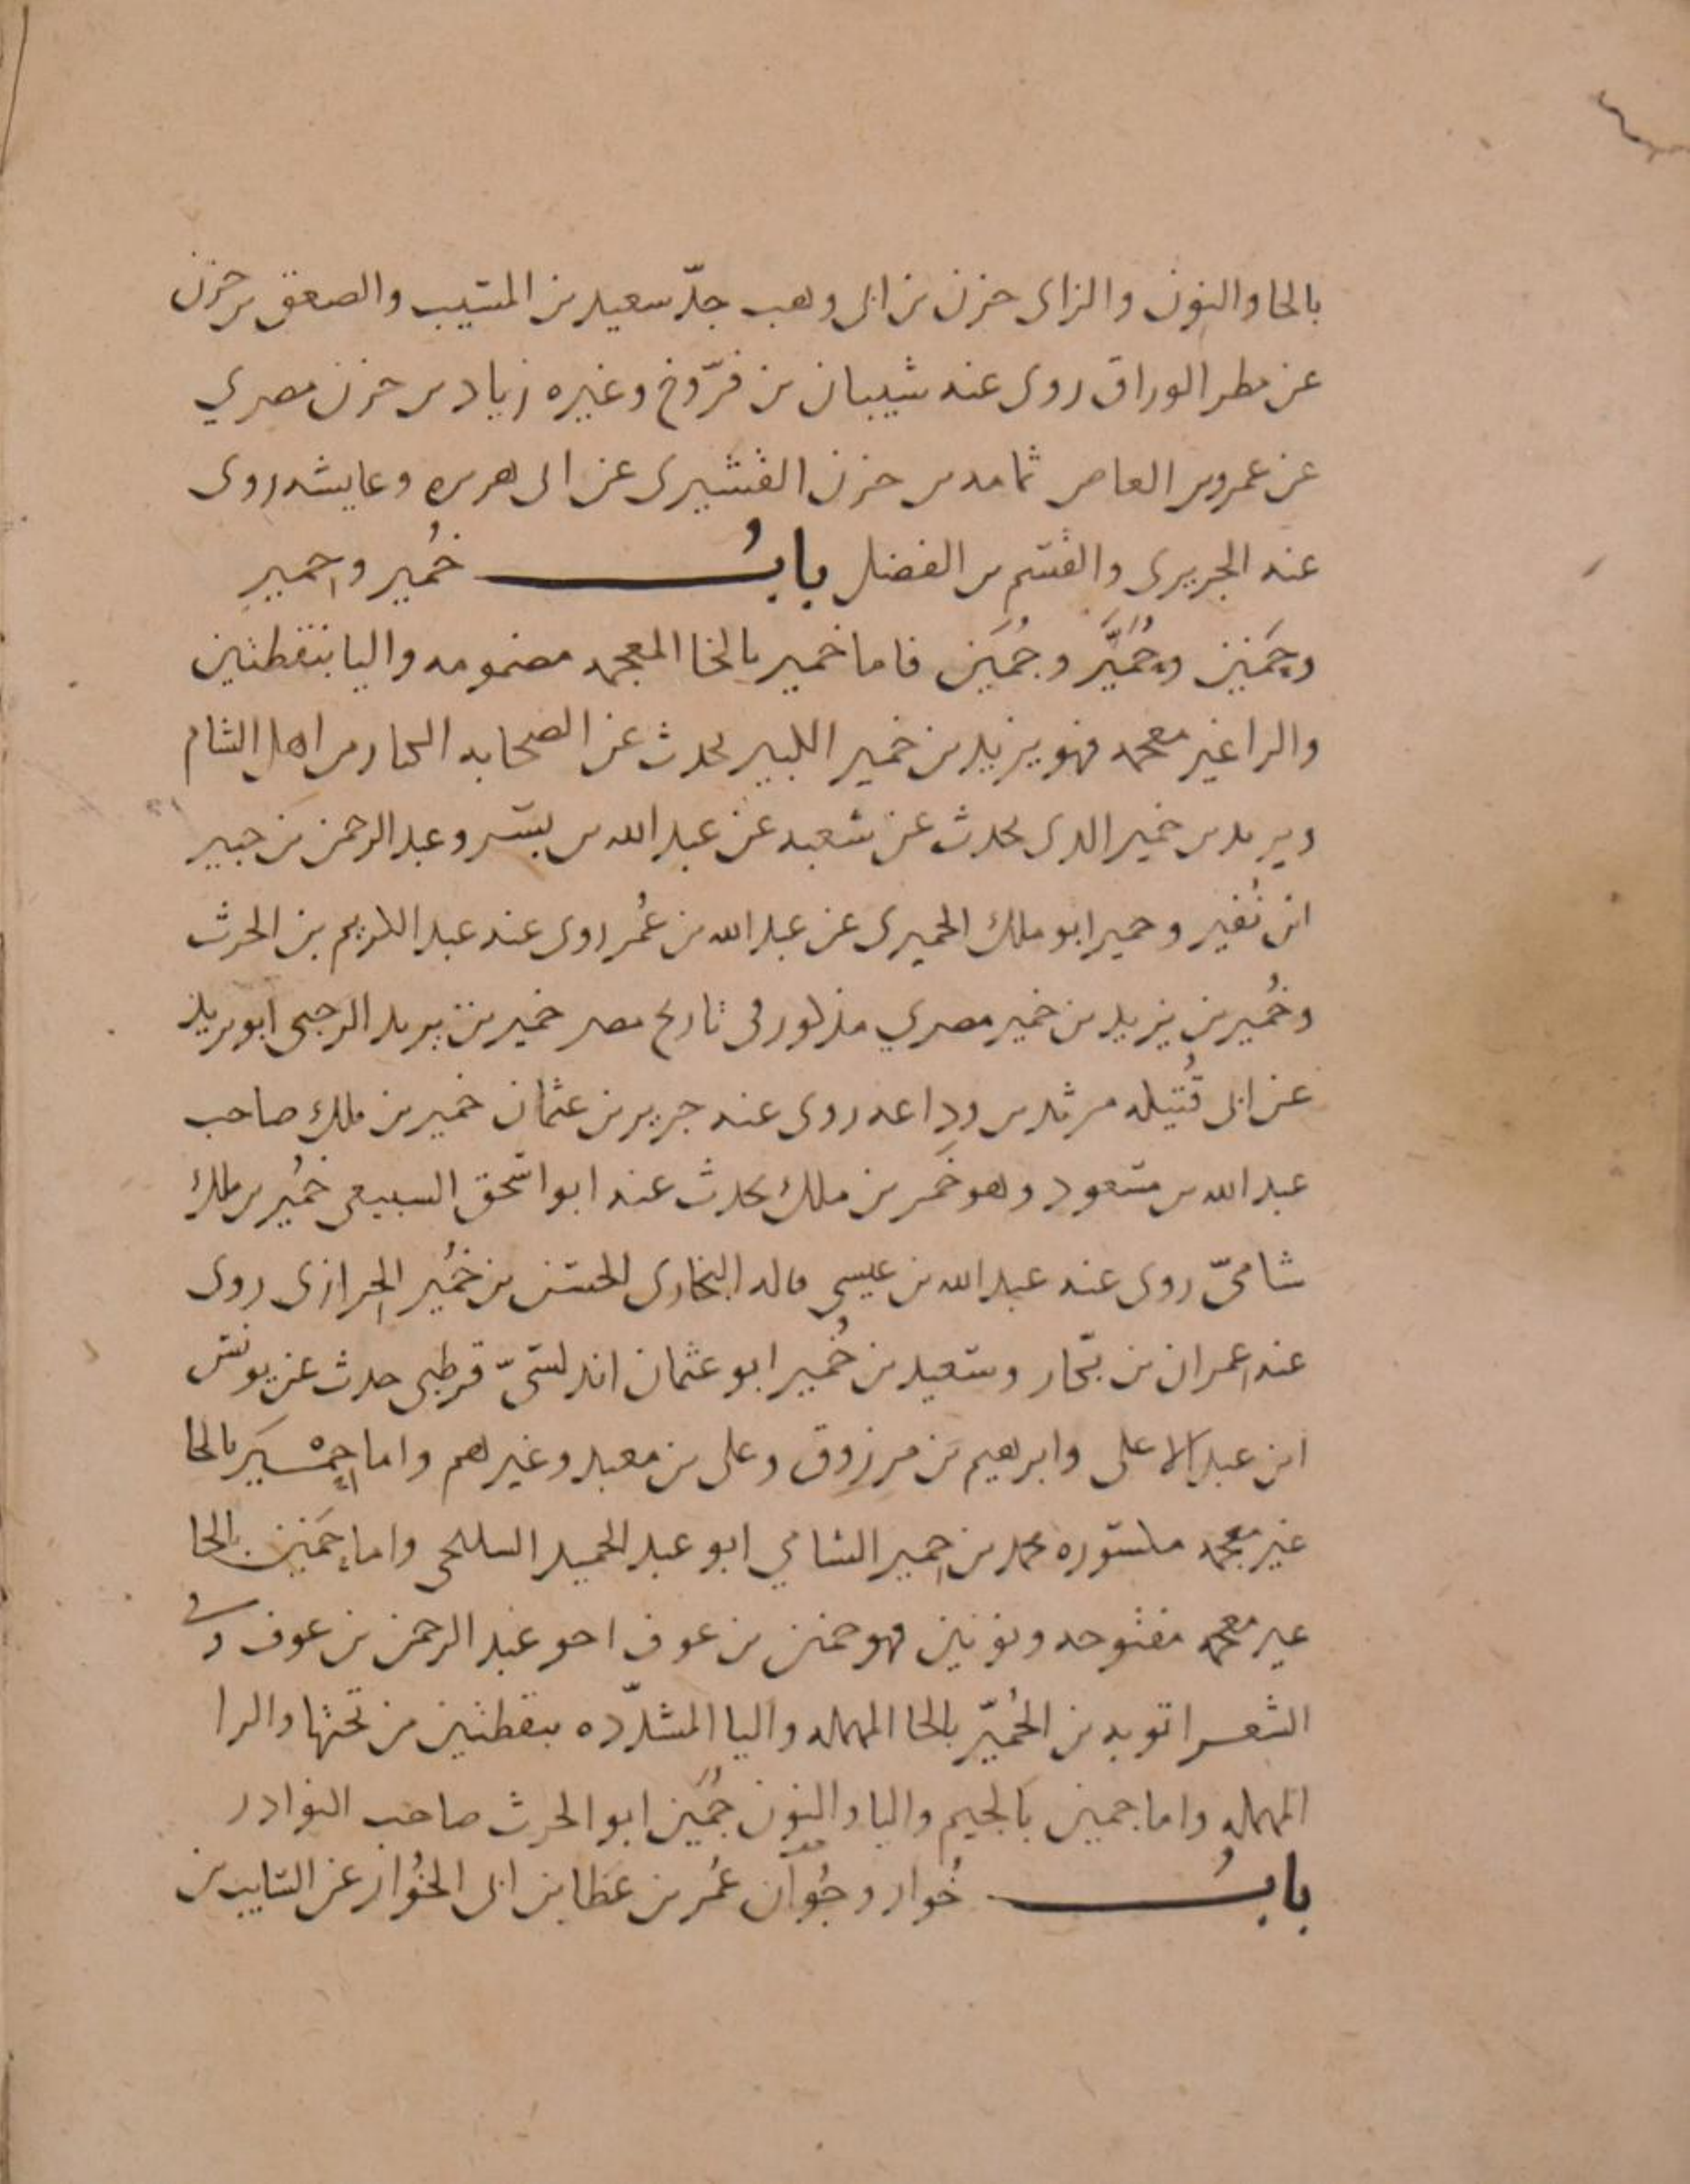 بالحا والنون والزاى حزن بن ابى وهب جدّ سعيد بن المسيب والصعق بن حزن
عن مطر الوراق روى عنه شيبان بن فرّوخ وغيره زياد بن حزن مصري
عن عمرو بن العاص ثمامه بن حزن القشيرى عن ابى هريره وعايشه روى
عنه الجريرى والقسم بن الفضل بابُ خُمير وحمير
وحَمنن وحُمَيَّر وجُمَين فاما خمير بالخا المعجمه مضمومه واليا بنقطتين
والرا غير معجمه فهو يزيد بن خمير الكبير يحدث عن الصحابه الحمار من اهل الشام
ويزيد بن خمير الذى يحدث عن شعبه عن عبد الله بن بسر وعبد الرحمن بن جبير
ابن نُفير وحمير ابو ملك الحميرى عن عبد الله بن عُمر روى عنه عبد الكريم بن الحرث
وخُمير بن يزيد بن خمير مصري مذكور فى تاريخ مصر خمير بن يزيد الرحبى ابو يزيد
عن ابى قُتيله مرثد بن وداعه روى عنه حريز بن عثمان خمير بن ملك صاحب
عبد الله بن مسعود وهو خَمر بن ملك يحدث عنه ابو اسحق السبيعى خمُير بن ملك
شامىّ روى عنه عبد الله بن عيسى قاله البخارى الحسن بن خمُير الحرازى روى
عنه عمران بن بكار وسعيد بن خُمير ابو عثمان اندلسىّ قرطبى حدث عن يونس
ابن عبد الاعلى وابرهيم بن مرزوق وعلى بن معبد وغيرهم واما حِمْيَر بالحا
غير معجمه مكسوره محمد بن حمير الشامي ابو عبد الحميد السلحى واما حَمنن بالحا
غير معجمه مفتوحه ونونين فهو حمنن بن عوف اخو عبد الرحمن بن عوف وفى
الشعرا توبه بن الحُميّر بالحا المهمله واليا المشدّده بنقطتين من تحتها والرا
المهمله واما جمين بالجيم واليا والنون جُمَّين ابو الحرث صاحب النوادر
بابُ خُوار وجُوان عُمر بن عَطا بن ابى الخُوار عن السايب بن